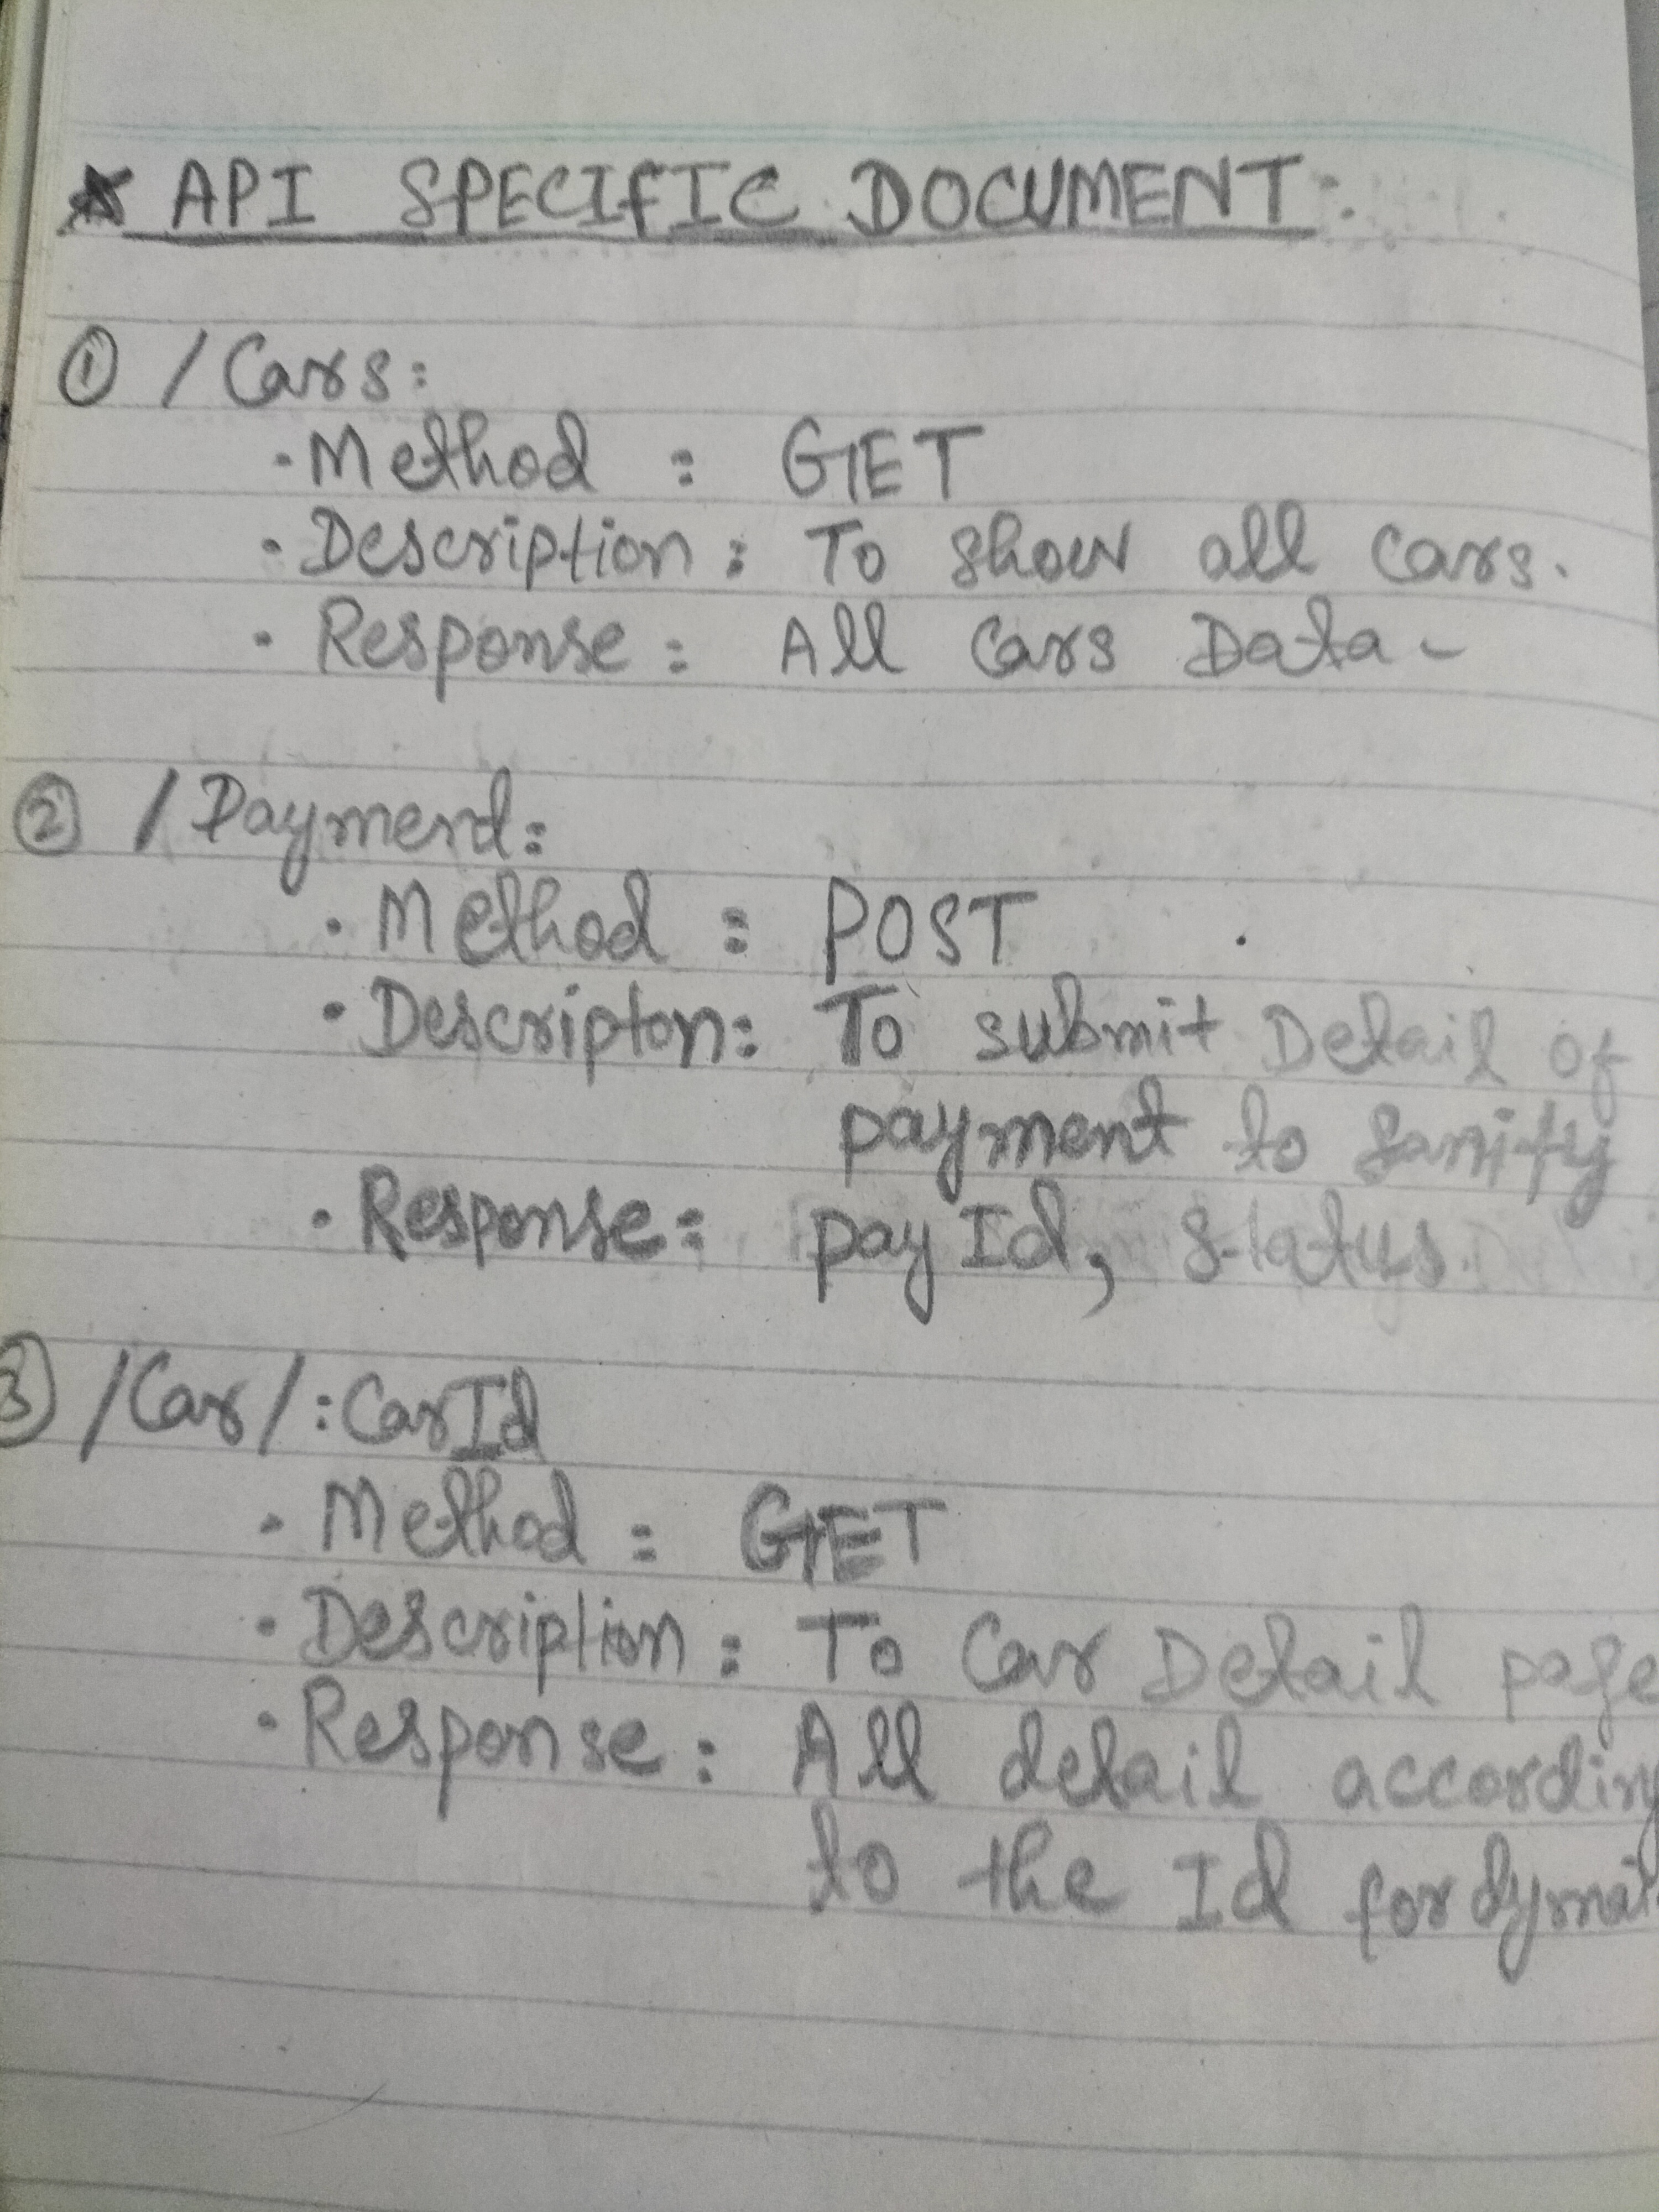 * API SPECIFIC DOCUMENT:
① /Cars:
· Method : GET
· Description : To show all cars.
· Response : All Cars Data -
② /Payment:
· Method : POST
· Descripton: To submit Detail of
payment to Sanity
· Response: pay Id, Status.
3) /Car/:CarId
· Method : GET
· Description : To Car Detail page
· Response : All detail according
to the Id for